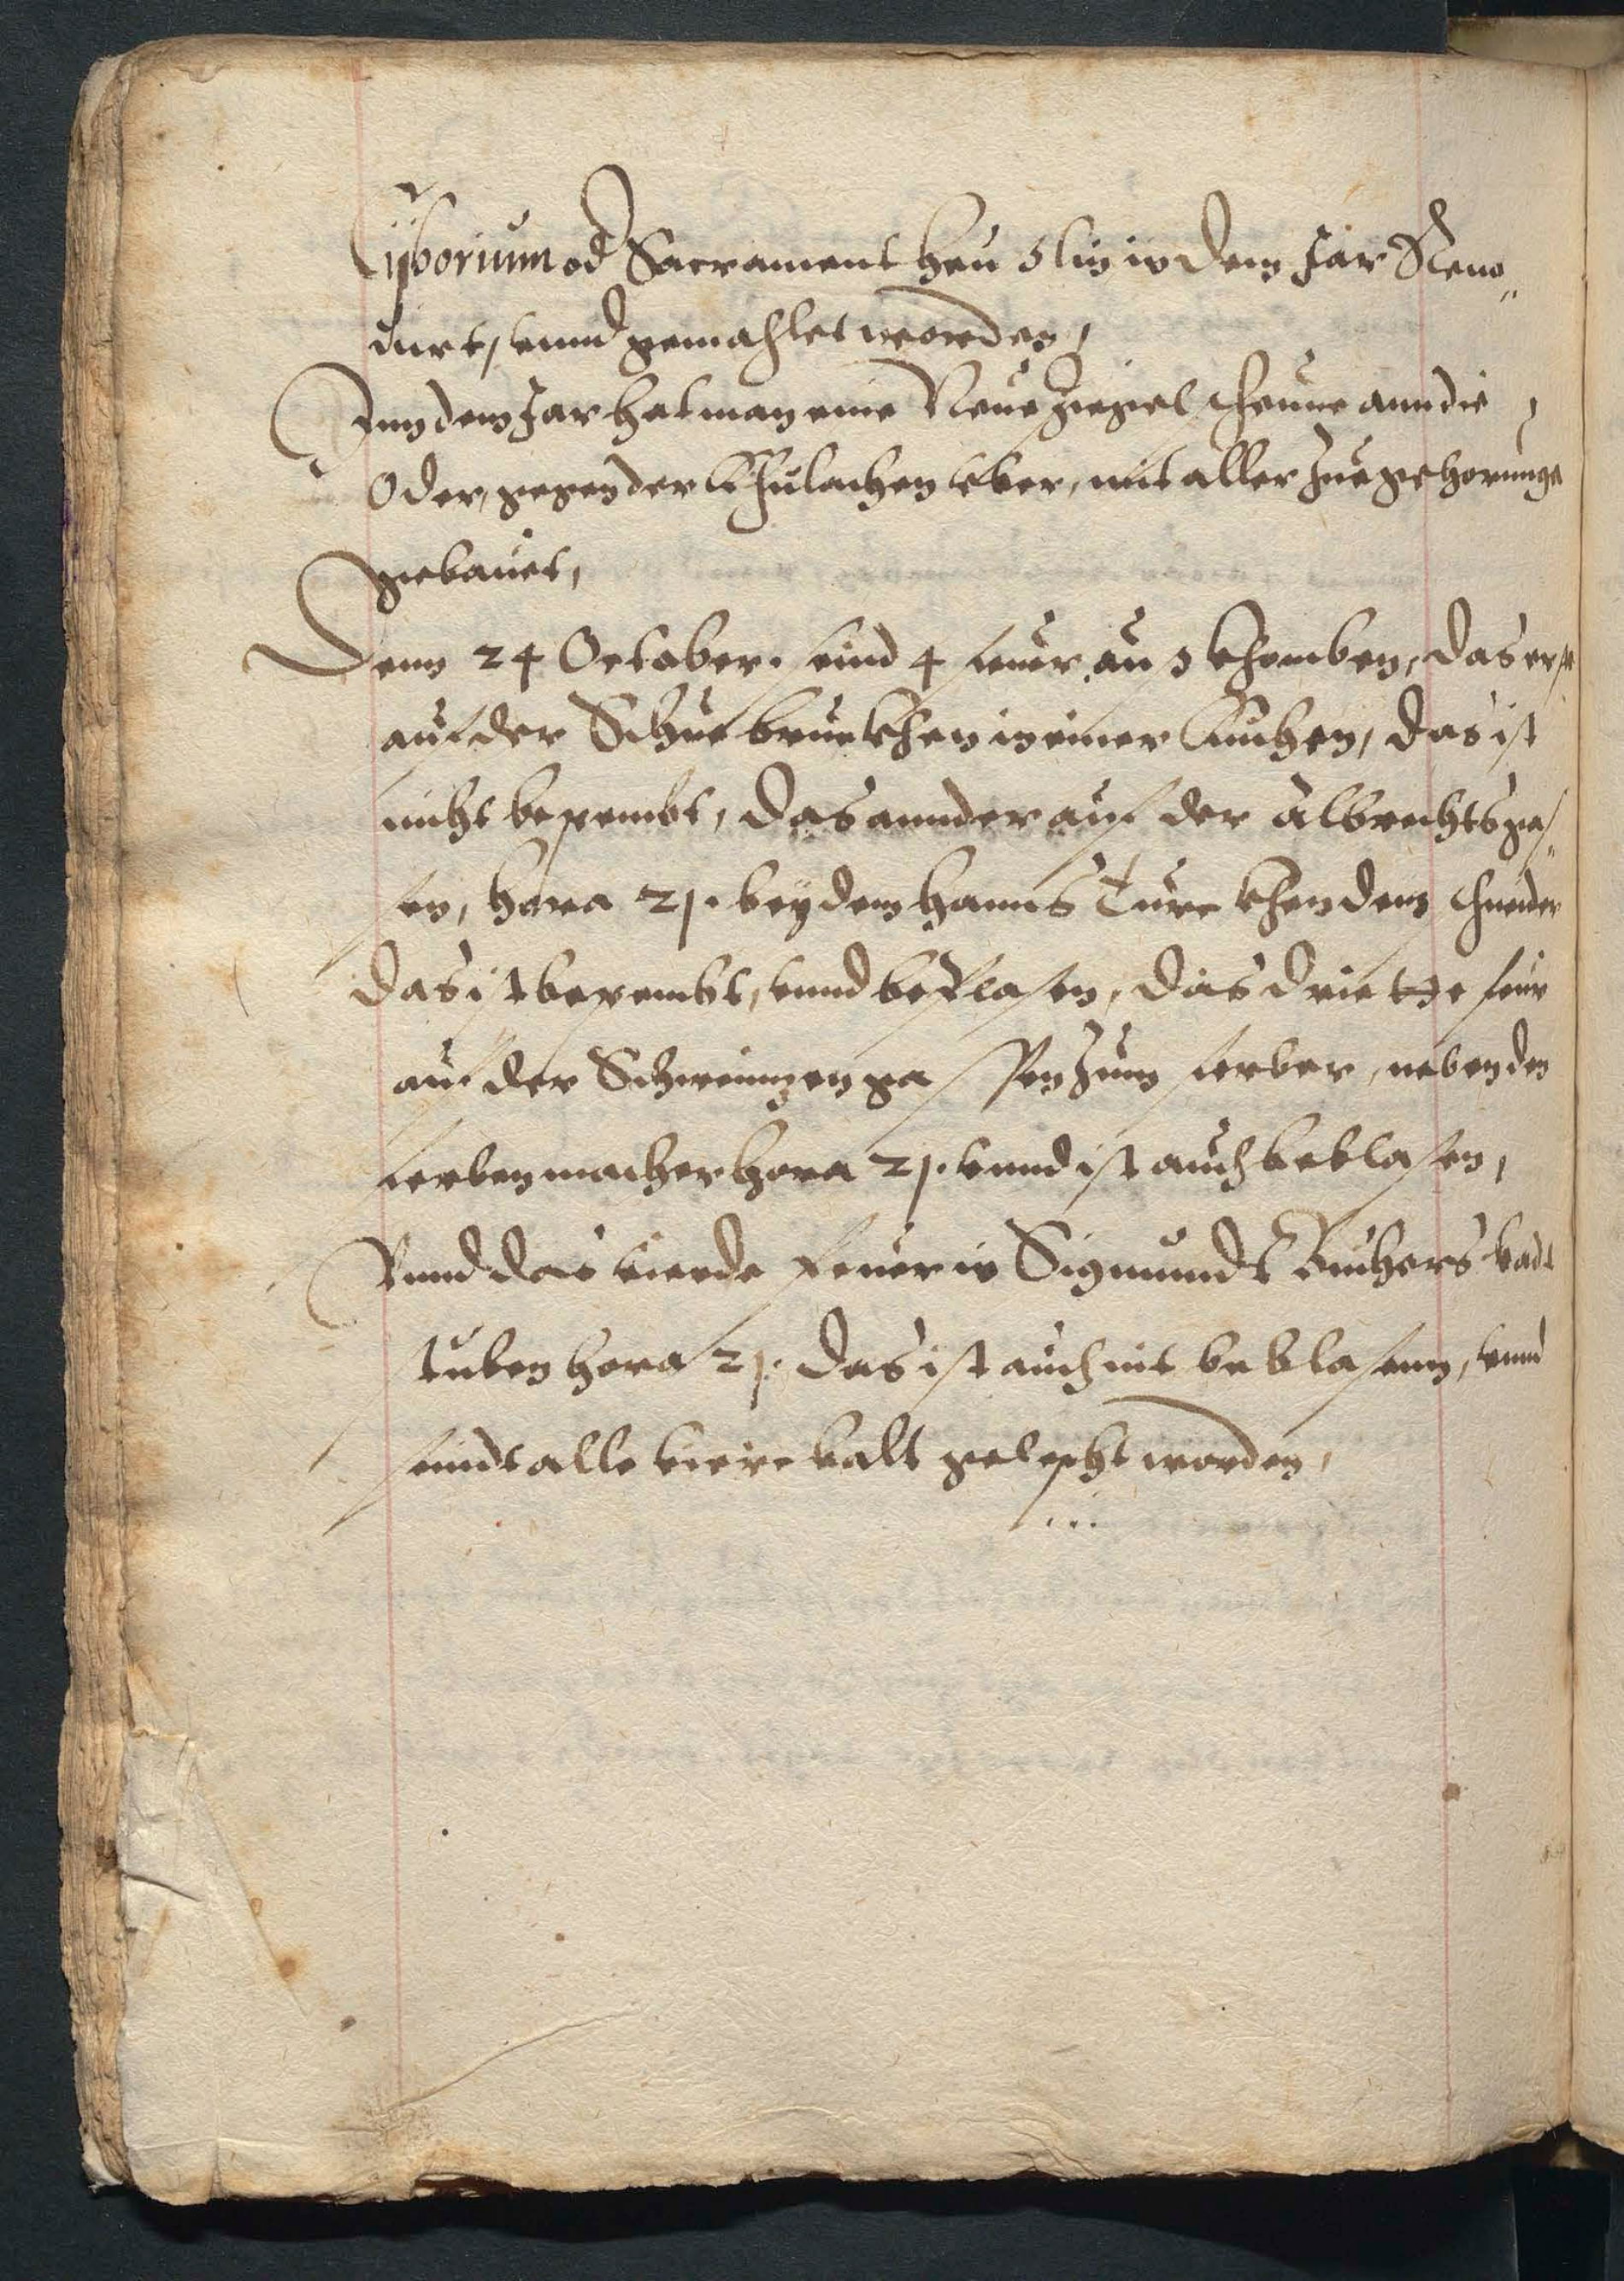 Ciiborium od Sacrament heuslin in dem Jar Reno„
uirt, vnnd gemahlet worden,
Inn dem Jar hat man eine Neue ziegel scheune ann die
Oder, gegen der Khulachen vber, mit aller Zuegehorunge
gebauet,
Denn 24 October. sind 4 feuer aus khomben, das erst
auf der Schue bruckhen in einer Kuchen, das ist
nicht berembt, das annder auf der albrechtsgas„
sen, hora 21. bey dem Hanns Turckhen dem schneider
das ist berembt, vnnd beblasen, das driette feur
auf der Schweinzen gassen Zum ferber, neben den
hora 21. vnnd ist auch beblasen,
Vnnd das vierde feuer in Sigmundt Buchers bad
stuben hora 21. das ist auch nit beblasenn, vnnd
seindt alle viere balt gelescht worden,